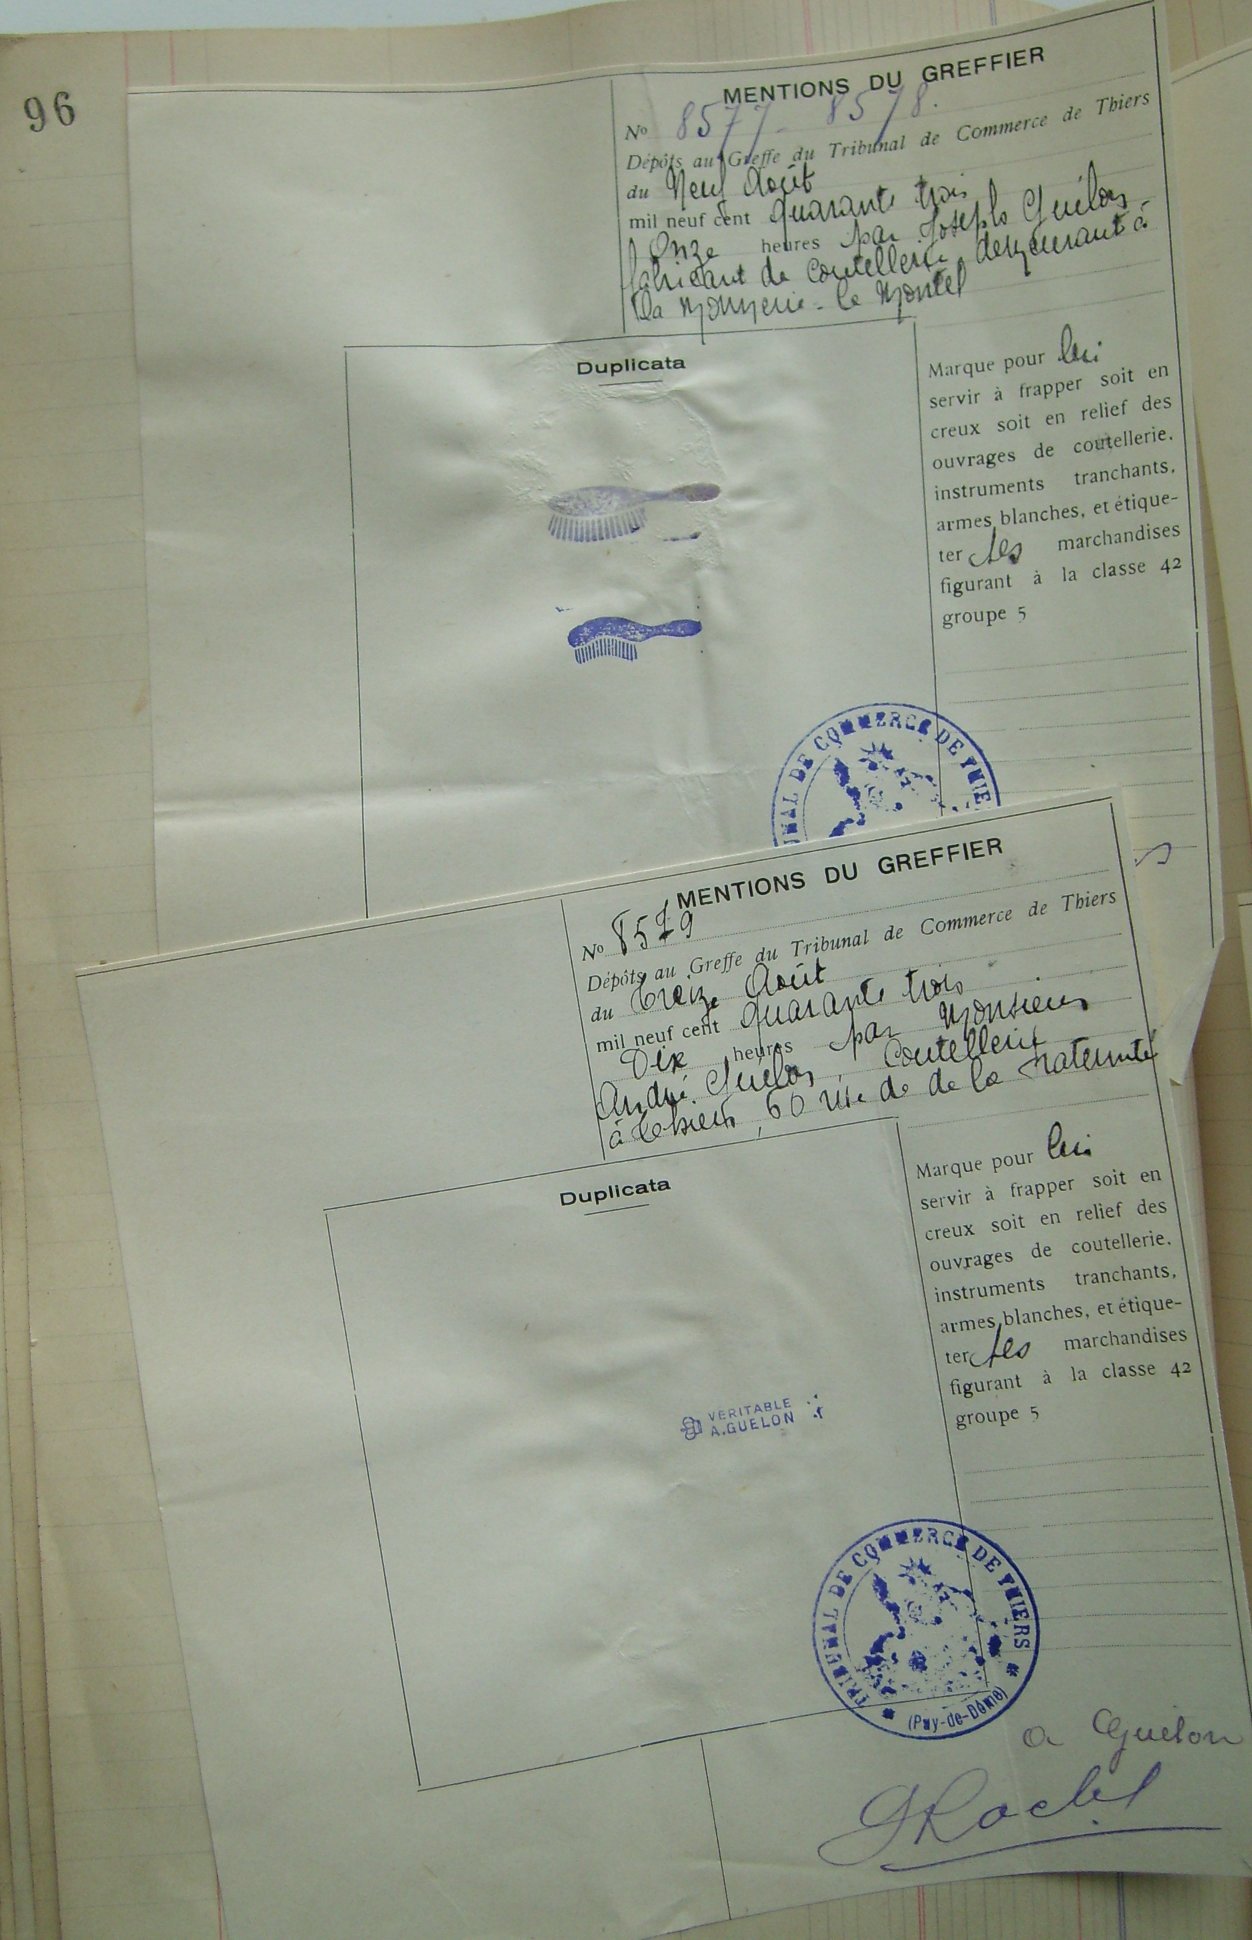 96
MENTIONS DU GREFFIER
No 8577 - 8578.
Dépôts au Greffe du Tribunal de Commerce de Thiers
du Neuf Août
mil neuf cent quarante trois
Onze heures par Joseph Guélon
fabricant de Coutellerie demeurant à
la Monnerie - le Montel
Duplicata
Marque pour lui
servir à frapper soit en
creux soit en relief des
ouvrages de coutellerie,
instruments tranchants,
armes blanches, et étique-
ter ses marchandises
figurant à la classe 42
groupe 5
NAL DE COMMERCE DE THIE
MENTIONS DU GREFFIER
No 8579
Dépôts au Greffe du Tribunal de Commerce de Thiers
du Treize Août
mil neuf cent quarante trois
Dix heures par Monsieur
André Guélon, Coutellerie
à Thiers, 60 rue de de la Fraternité
Duplicata
Marque pour lui
servir à frapper soit en
creux soit en relief des
ouvrages de coutellerie,
instruments tranchants,
armes blanches, et étique-
ter ses marchandises
figurant à la classe 42
groupe 5
VERITABLE
A.GUELON
TRIBUNAL DE COMMERCE DE THIERS
(Puy-de-Dôme)
a Guelon